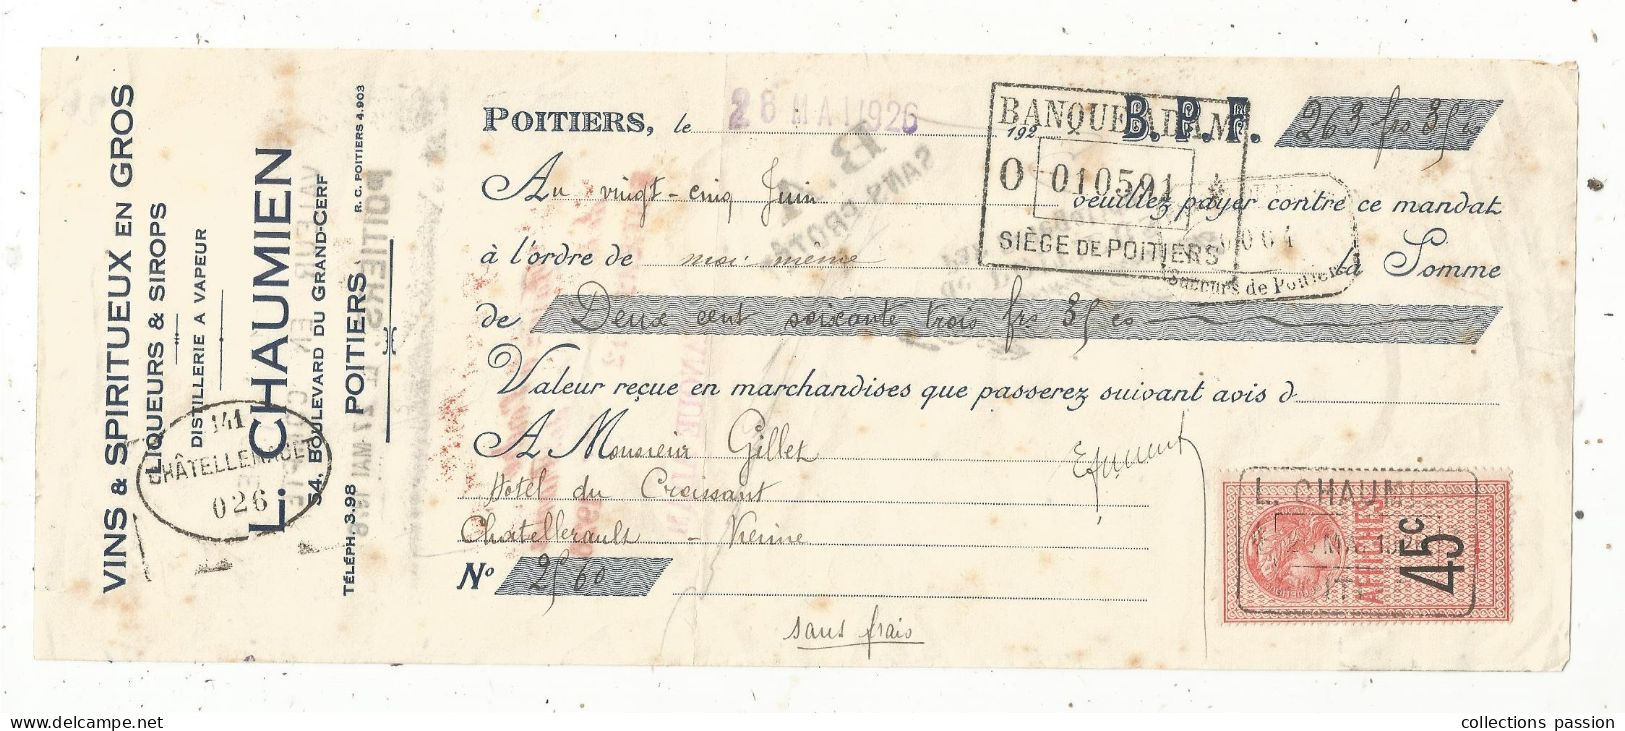 VINS & SPIRITUEUX EN GROS
LIQUEURS & SIROPS
DISTILLERIE A VAPEUR
L. CHAUMIEN
54, BOULEVARD DU GRAND-CERF
POITIERS
TÉLÉPH. 3.98
R. C. POITIERS 4.903
141
CHÂTELLERAULT
026
POITIERS, le 28 MAI 1926 192
B. P. F. 263 frs 35 cs
BANQUE ADAM
0 010591
SIÈGE DE POITIERS
Au vingt-cinq Juin veuillez payer contre ce mandat
à l'ordre de moi-même la Somme
Succurs de Poitiers
de Deux cent soixante trois frs 35 cs
Valeur reçue en marchandises que passerez suivant avis d
A Monsieur Gillet
Hotel du Croissant
Chatellerault - Vienne
No 2560
sans frais
L. CHAUMI
AFFICHES
45c
collections passion